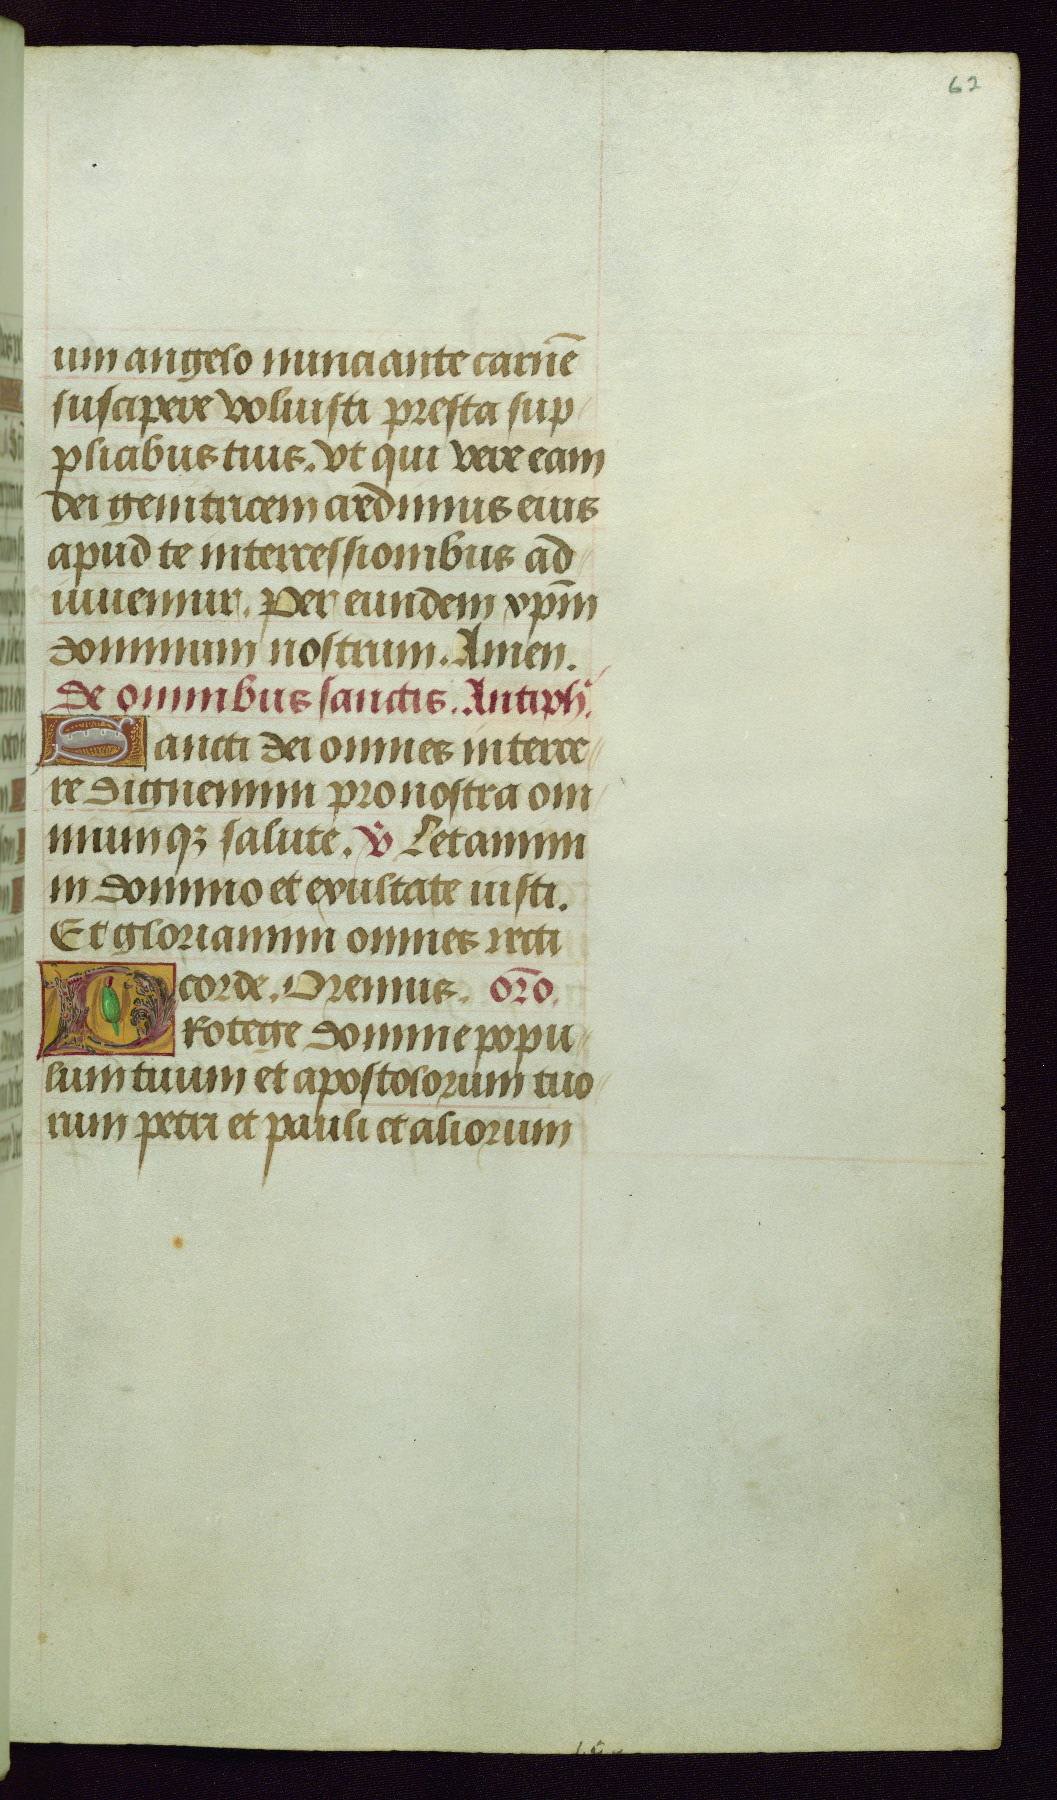 62
um angelo nunciante carnē
suscipere voluisti presta sup
plicibus tuis. vt qui vere eam
dei genitricem credimus eius
apud te intercessionibus ad
iuuemur. Per eundem xpm̄
dominum nostrum. Amen.
De omnibus sanctis. Antiph
Sancti dei omnes interce
re dignemini pro nostra om
niumqꝫ salute. V̄ Letamini
in domino et exultate iusti.
Et gloriamini omnes recti
corde. Oremus. oro.
Protege domine popu
lum tuum et apostolorum tuo
rum petri et pauli et aliorum